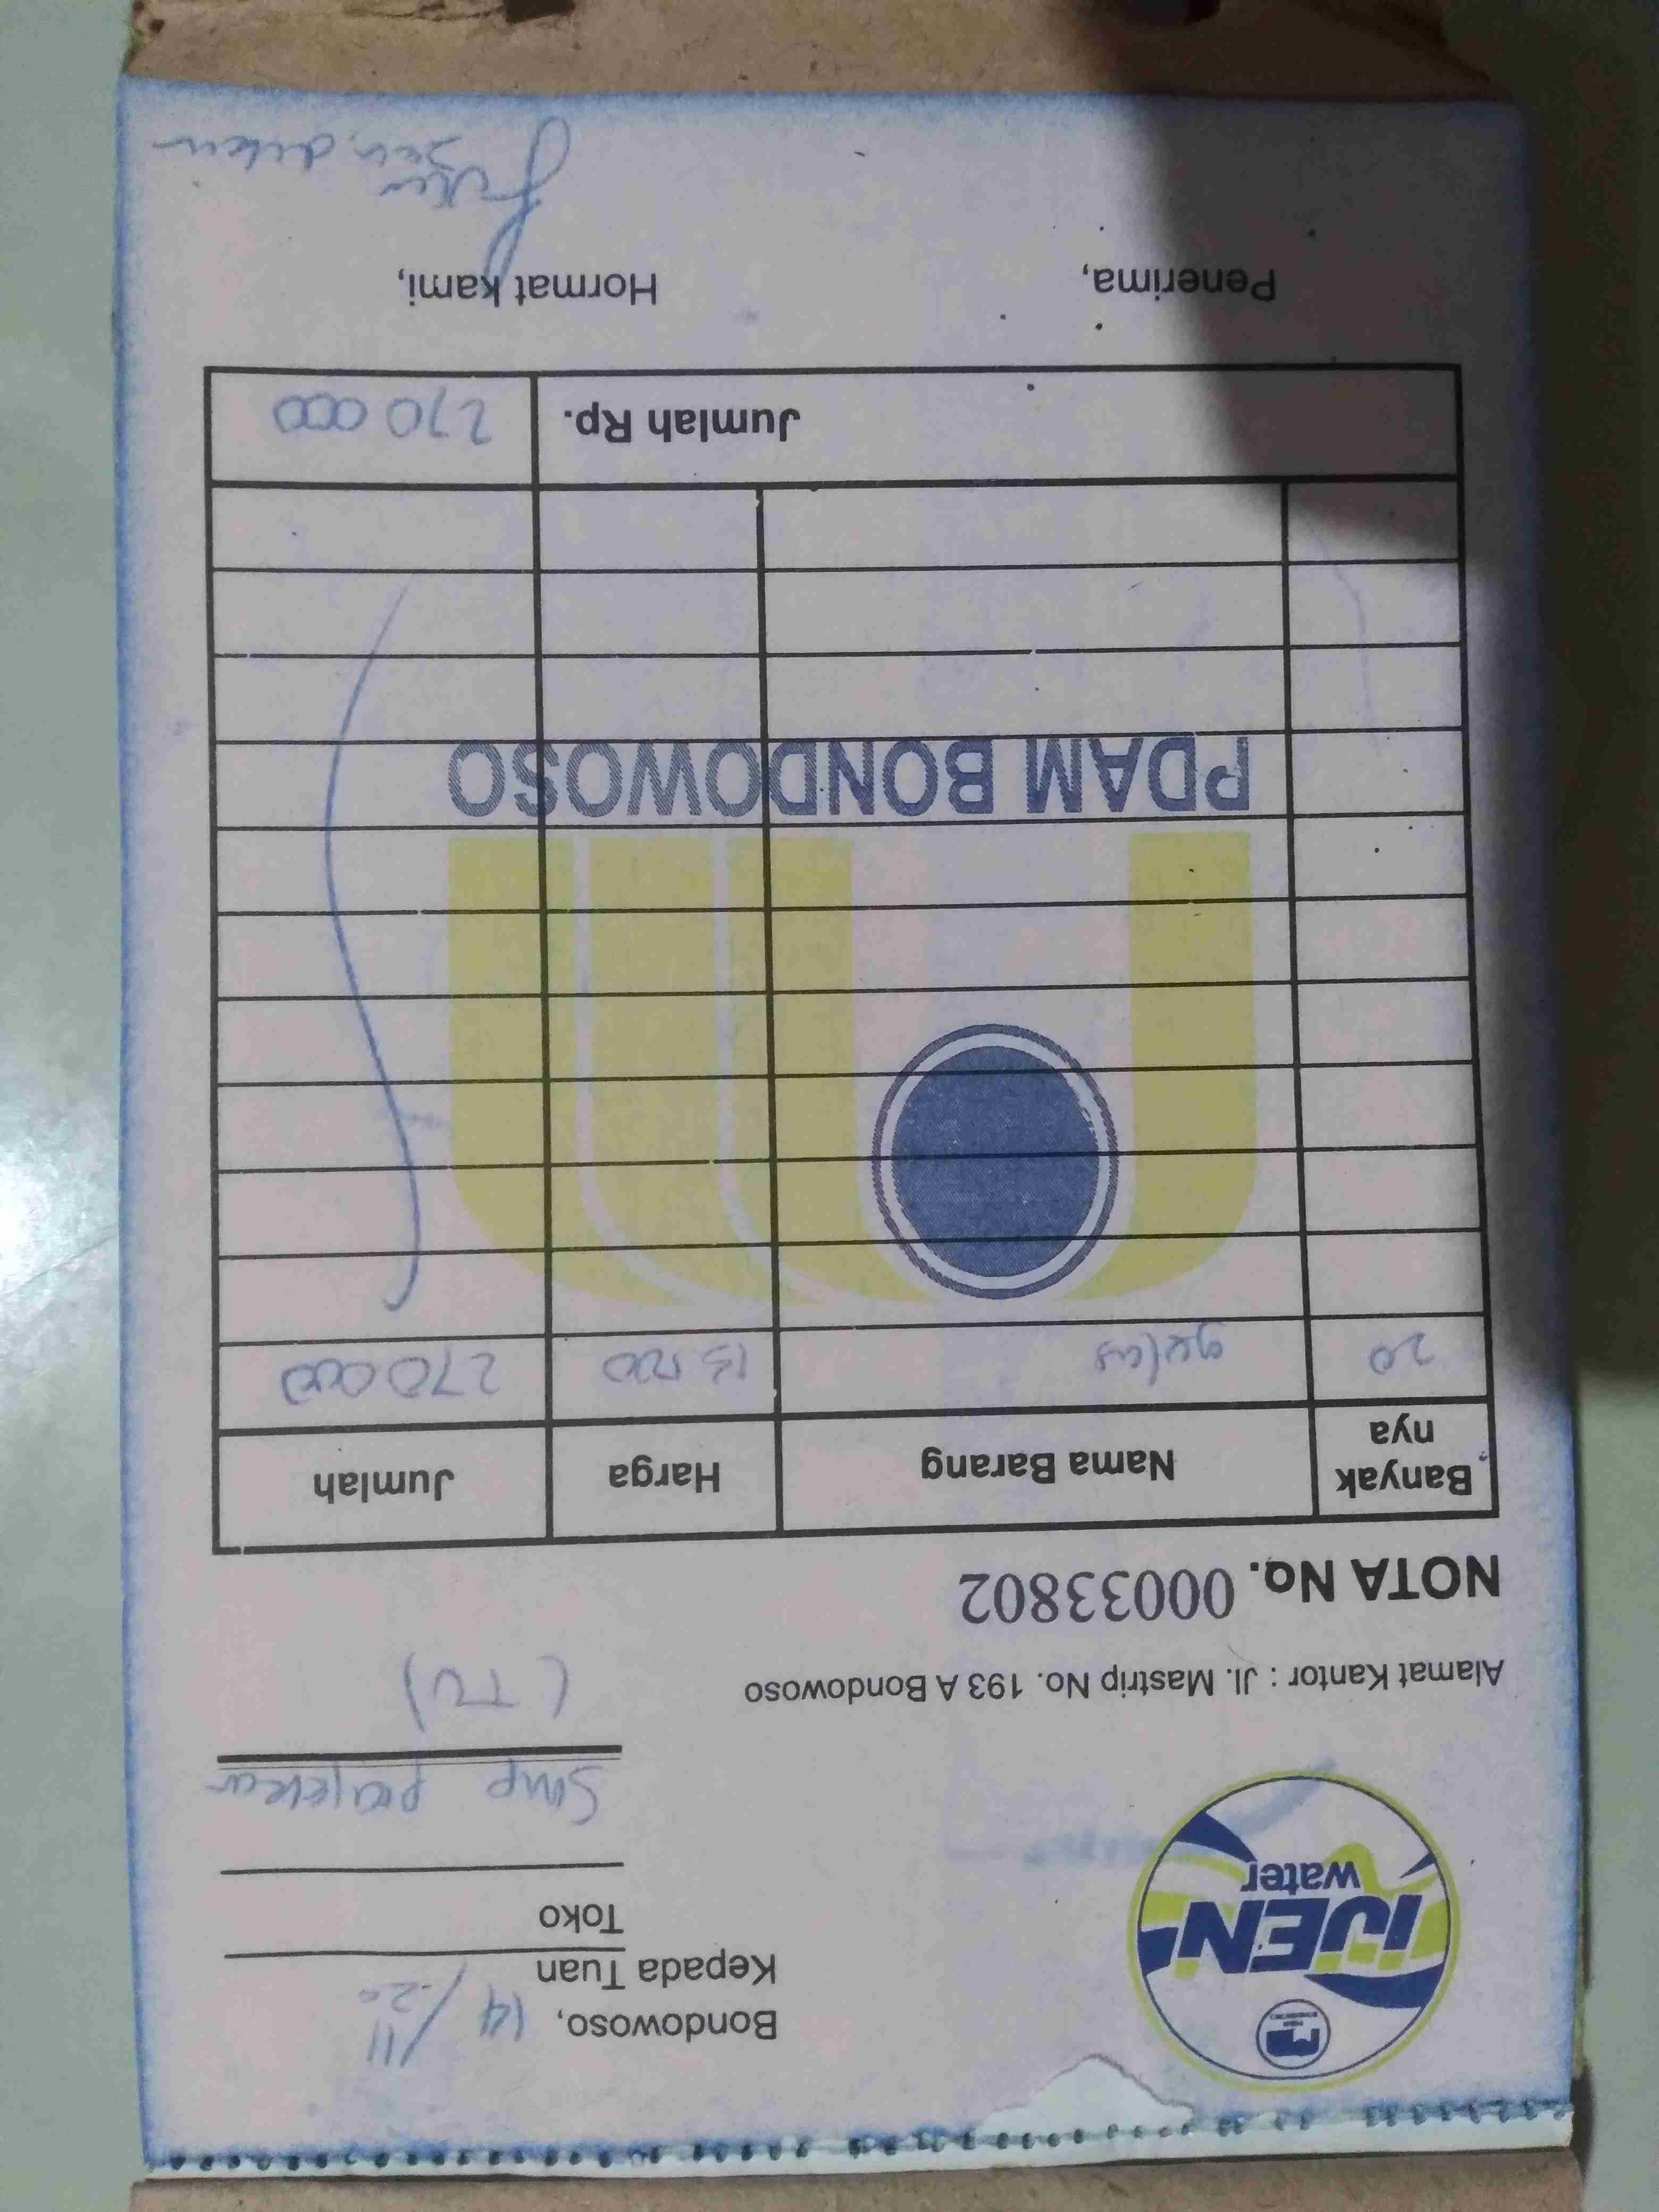 IJEN
water
Bondowoso, 14/11-20
Kepada Tuan
Toko
Smp
(TU)
Alamat Kantor : Jl. Mastrip No. 193 A Bondowoso
NOTA No. 00033802
Banyak nya Nama Barang Harga Jumlah
20 gelas 13.500 270.000
PDAM BONDOWOSO
Jumlah Rp. 270 000
Penerima, Hormat kami,